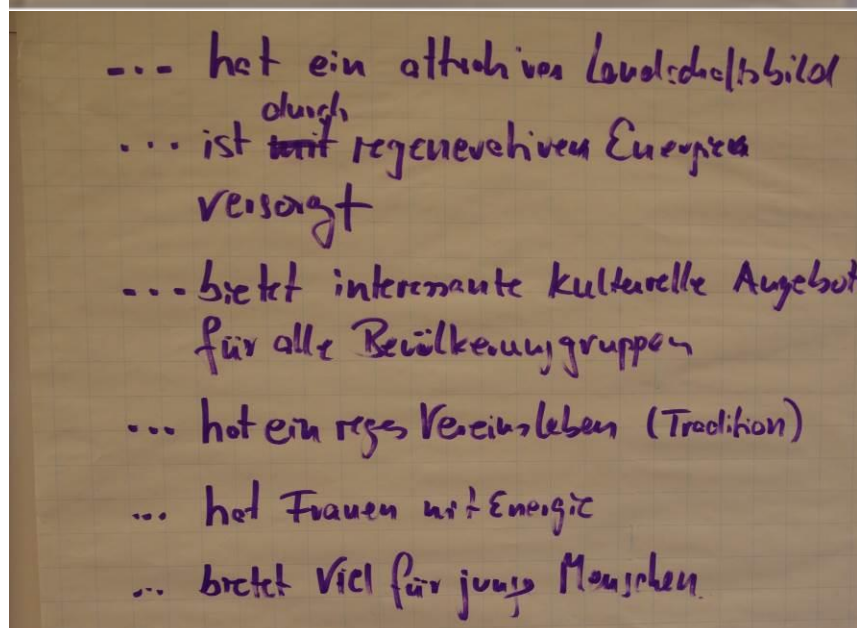 ... hat ein attraktives Landschaftsbild
durch
... ist mit regenerativen Energien
versorgt
... bietet interessante kulturelle Angebot
für alle Bevölkerungsgruppen
... hat ein reges Vereinsleben (Tradition)
... hat Frauen mit Energie
... bietet viel für junge Menschen